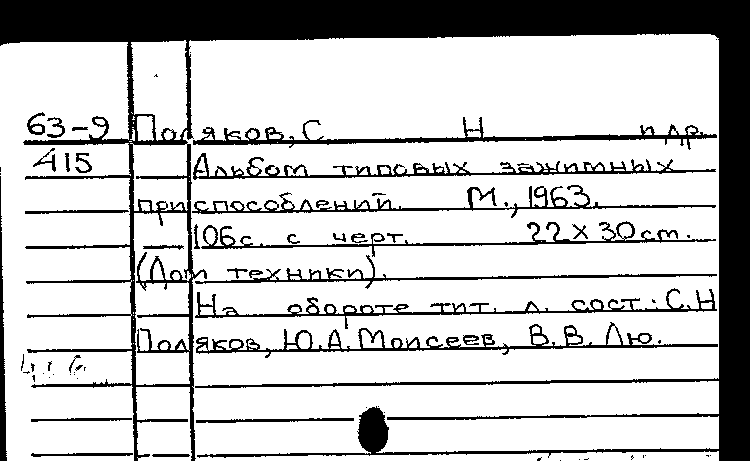 63-9 Поляков, С Н и др.
415 Альбом типовых зажимных
приспособлений. М., 1963.
106с. с черт. 22 х 30 ст.
(Дом техники).
На обороте тит. л. сост.: С.Н
Поляков, Ю.А. Моисеев, В.В. Лю.